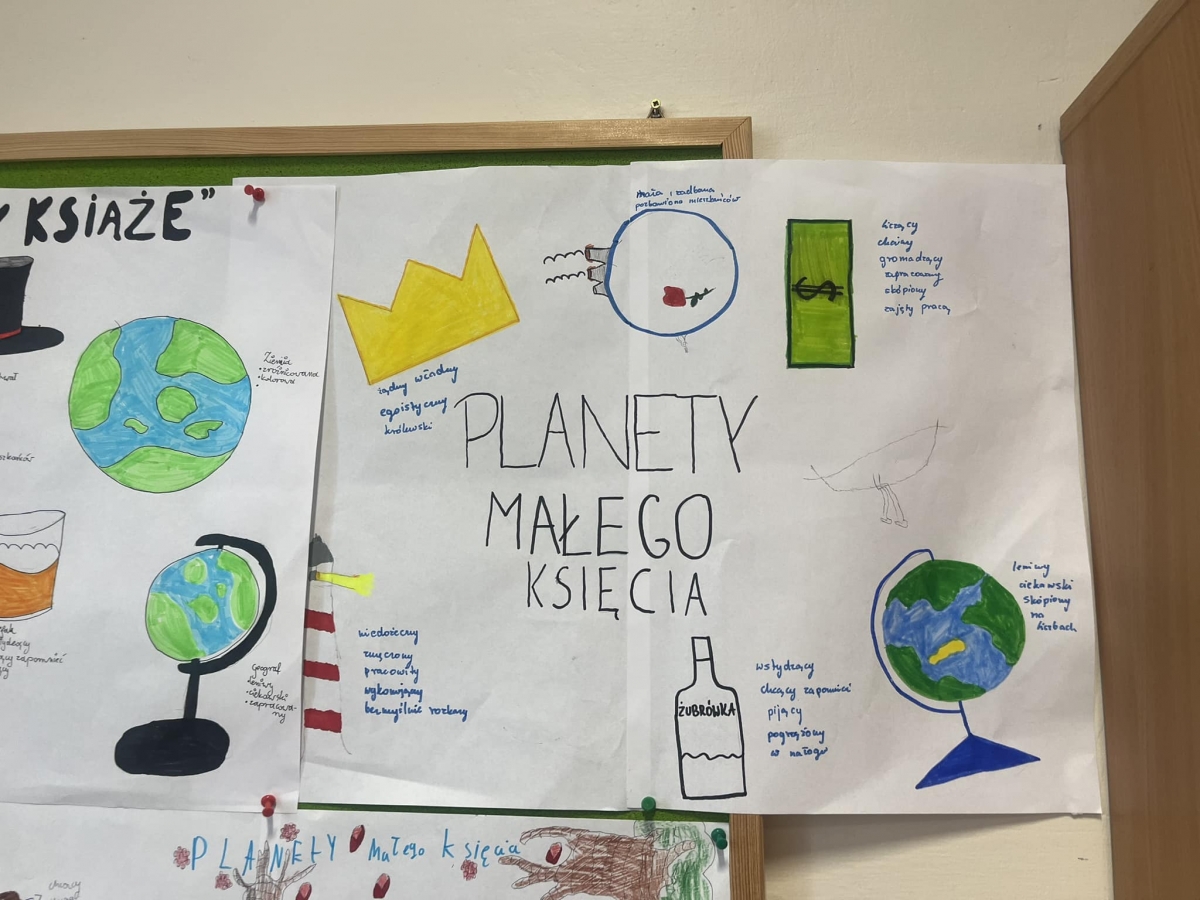 KSIĄŻE”
Ziemia
• zróżnicowana
• kolorowa
zapomnieć
Geograf
• leniwy
• ciekawski
• zapracowa-
ny
mała i zadbana
pozbawiona mieszkańców
żądny władzy
egoistyczny
królewski
liczący
chciwy
gromadzący
zapracowany
skąpiony
zajęty pracą
$
PLANETY
MAŁEGO
KSIĘCIA
niedorzeczny
zmęczony
pracowity
wykonujący
bezmyślnie rozkazy
ŻUBRÓWKA
wstydzący
chcący zapomnieć
pijący
pogrążony
w nałogu
leniwy
ciekawski
skópiony
na
liczbach
PLANETY Małego Księcia